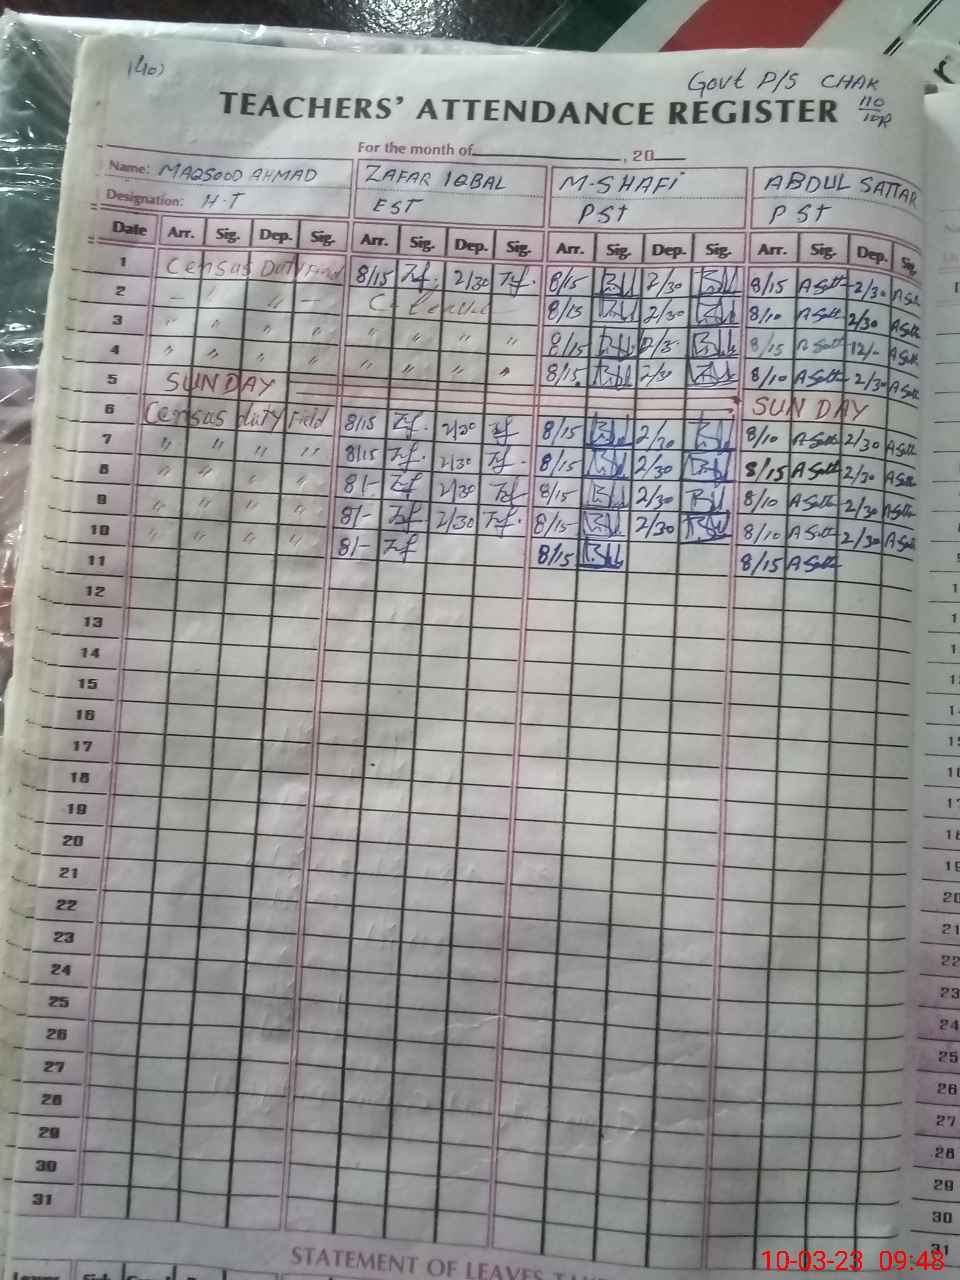 (40)
Govt P/S CHAK 110/10R
TEACHERS' ATTENDANCE REGISTER
For the month of , 20
Name: MAQSOOD AHMAD ZAFAR IQBAL M-SHAFI ABDUL SATTAR
Designation: H-T EST PST PST
Date Arr. Sig. Dep. Sig. Arr. Sig. Dep. Sig. Arr. Sig. Dep. Sig. Arr. Sig. Dep. Sig.
1 Census Duty Field 8/15 Zf. 2/30 Zf. 8/15 2/30 8/15 A Satt 2/30 A Satt
2 — " " — C- leave 8/15 2/30 8/10 A Satt 2/30 A Satt
3 " " " " " " " " 8/15 2/3 8/15 A Satt 12/- A Satt
4 " " " " " " " " 8/15 2/30 8/10 A Satt 2/30 A Satt
5 SUNDAY SUN DAY
6 Census duty Field 8/15 Zf. 2/30 Zf 8/15 2/30 8/10 A Satt 2/30 A Satt
7 " " " " 8/15 Zf. 2/30 Zf. 8/15 2/30 8/15 A Satt 2/30 A Satt
8 " " " " 8/- Zf 2/30 Zf 8/15 2/30 8/10 A Satt 2/30 A Satt
9 " " " " 8/- Zf 2/30 Zf. 8/15 2/30 8/10 A Satt 2/30 A Satt
10 " " " " 8/- Zf 8/15 8/15 A Satt
11
12
13
14
15
16
17
18
19
20
21
22
23
24
25
26
27
28
29
30
31
STATEMENT OF LEAVES
10-03-23 09:48